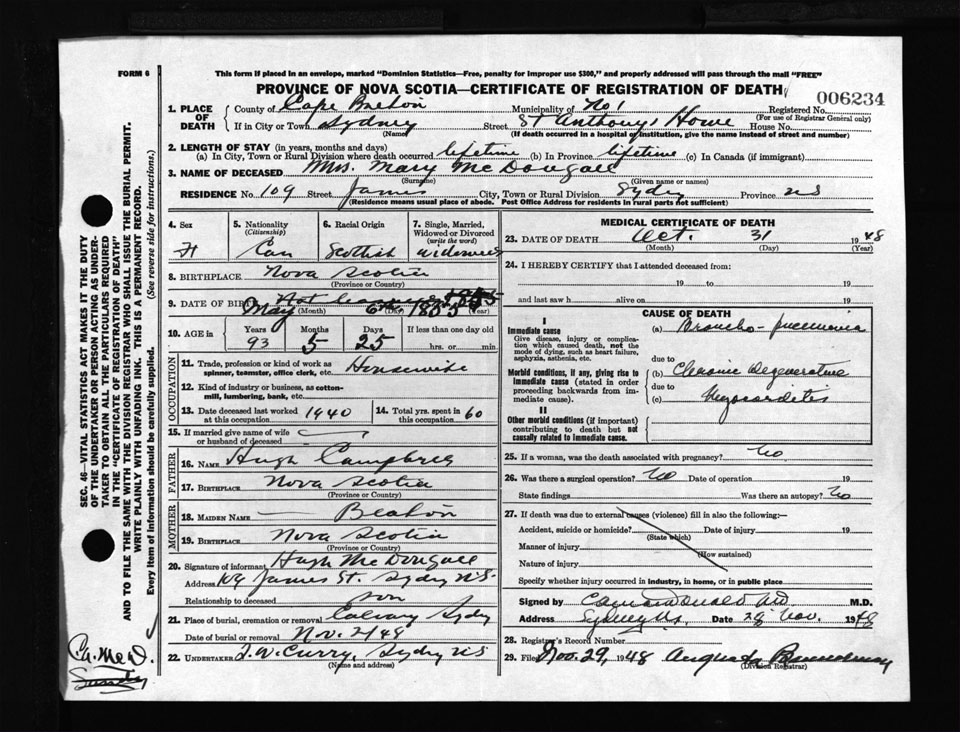 FORM 6
This form if placed in an envelope, marked "Dominion Statistics—Free, penalty for improper use $300," and properly addressed will pass through the mail "FREE"
PROVINCE OF NOVA SCOTIA—CERTIFICATE OF REGISTRATION OF DEATH
006234
1. PLACE OF DEATH
County of Cape Breton Municipality of No 1 Registered No.
(For use of Registrar General only)
If in City or Town Sydney Street St Anthony's Home House No.
(Name) (If death occurred in a hospital or institution, give the name instead of street and number)
2. LENGTH OF STAY (in years, months and days)
(a) In City, Town or Rural Division where death occurred lifetime (b) In Province lifetime (c) In Canada (if immigrant)
3. NAME OF DECEASED Mrs. Mary McDougall
(Surname) (Given name or names)
RESIDENCE No. 109 Street James City, Town or Rural Division Sydney Province NS
(Residence means usual place of abode. Post Office Address for residents in rural parts not sufficient)
4. Sex
F
5. Nationality
(Citizenship)
Can
6. Racial Origin
Scottish
7. Single, Married, Widowed or Divorced
(write the word)
widowed
8. BIRTHPLACE Nova Scotia
(Province or Country)
9. DATE OF BIRTH May 6th 1855
(Month) (Day) (Year)
10. AGE in
Years Months Days If less than one day old
93 5 25 hrs. or min.
OCCUPATION
11. Trade, profession or kind of work as
spinner, teamster, office clerk, etc. Housewife
12. Kind of industry or business, as cotton-
mill, lumbering, bank, etc.
13. Date deceased last worked at this occupation 1940
14. Total yrs. spent in this occupation 60
15. If married give name of wife
or husband of deceased
FATHER
16. NAME Hugh Campbell
17. BIRTHPLACE Nova Scotia
(Province or Country)
MOTHER
18. MAIDEN NAME — Beaton
19. BIRTHPLACE Nova Scotia
(Province or Country)
20. Signature of informant Hugh McDougall
Address 109 James St. Sydney NS.
Relationship to deceased son
21. Place of burial, cremation or removal Calvary Sydney
Date of burial or removal Nov. 2/48
22. UNDERTAKER T.W. Curry, Sydney NS
(Name and address)
MEDICAL CERTIFICATE OF DEATH
23. DATE OF DEATH Oct. 31 1948
(Month) (Day) (Year)
24. I HEREBY CERTIFY that I attended deceased from:
19 to 19
and last saw h alive on 19
CAUSE OF DEATH
I
Immediate cause
Give disease, injury or complica-
tion which caused death, not the
mode of dying, such as heart failure,
asphyxia, asthenia, etc.
(a) Broncho-pneumonia
due to
Morbid conditions, if any, giving rise to
immediate cause (stated in order
proceeding backwards from im-
mediate cause).
(b) Chronic Degenerative
due to
(c) Myocarditis
II
Other morbid conditions (if important)
contributing to death but not
causally related to immediate cause.
25. If a woman, was the death associated with pregnancy? No
26. Was there a surgical operation? No Date of operation 19
State findings Was there an autopsy? No
27. If death was due to external causes (violence) fill in also the following:—
Accident, suicide or homicide? Date of injury 19
(State which)
Manner of injury
(How sustained)
Nature of injury
Specify whether injury occurred in industry, in home, or in public place
Signed by M.D.
Address Sydney NS. Date 28 Nov. 1948
28. Registrar's Record Number
29. Filed Nov. 29, 1948
(Division Registrar)
SEC. 46—VITAL STATISTICS ACT MAKES IT THE DUTY
OF THE UNDERTAKER OR PERSON ACTING AS UNDER-
TAKER TO OBTAIN ALL THE PARTICULARS REQUIRED
IN THE "CERTIFICATE OF REGISTRATION OF DEATH"
AND TO FILE THE SAME WITH THE DIVISION REGISTRAR WHO SHALL ISSUE THE BURIAL PERMIT.
WRITE PLAINLY WITH UNFADING INK. THIS IS A PERMANENT RECORD.
Every item of information should be carefully supplied. (See reverse side for instructions.)